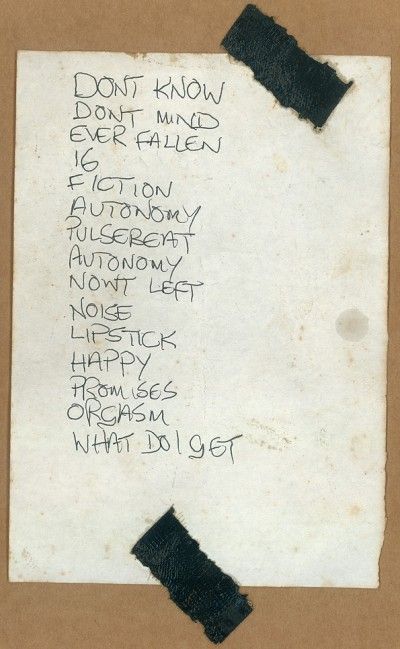 DONT KNOW
DONT MIND
EVER FALLEN
16
FICTION
AUTONOMY
PULSEBEAT
AUTONOMY
NOWT LEFT
NOISE
LIPSTICK
HAPPY
PROMISES
ORGASM
WHAT DO I GET